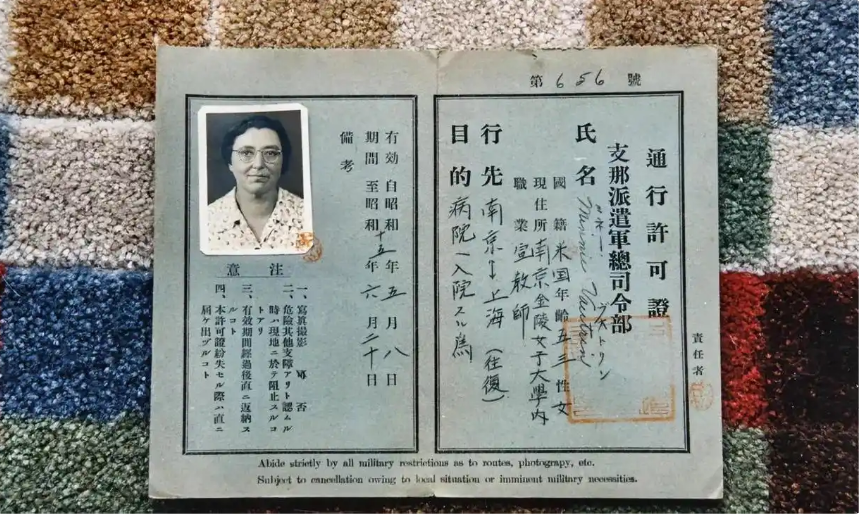 第 656 號
責任者
通行許可證
支那派遣軍總司令部
氏名 Minnie Vautrin
ヴォトリン
國籍 米国 年齢 五三 性 女
現住所 南京金陵女子大學内
職業 宣教師
行先 南京 上海 (往復)
目的 病院ヘ入院スル為
有効 自昭和 年 五月 八日
期間 至昭和十五年 六月 二十日
備考
注意
一、寫眞撮影 否
二、危險其他支障アリト認ムル
時ハ現地ニ於テ阻止スルコ
トアリ
三、有效期間經過後直ニ返納ス
ルコト
四、本許可證紛失セル際ハ直ニ
屆ケ出ヅルコト
Abide strictly by all military restrictions as to routes, photograpy, etc.
Subject to cancellation owing to local situation or imminent military necessities.